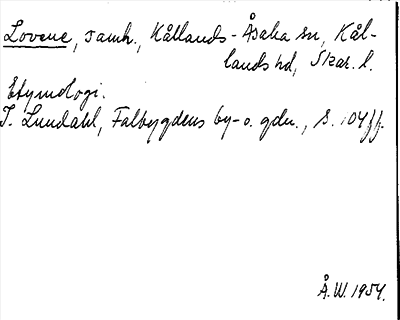 Lovene, samh., Kållands-Åsaka sn, Kål-
lands hd, Skar. l.
Etymologi.
I. Lundahl, Falbygdens by- o. gdn., s. 104 ff.
Å.W. 1954.